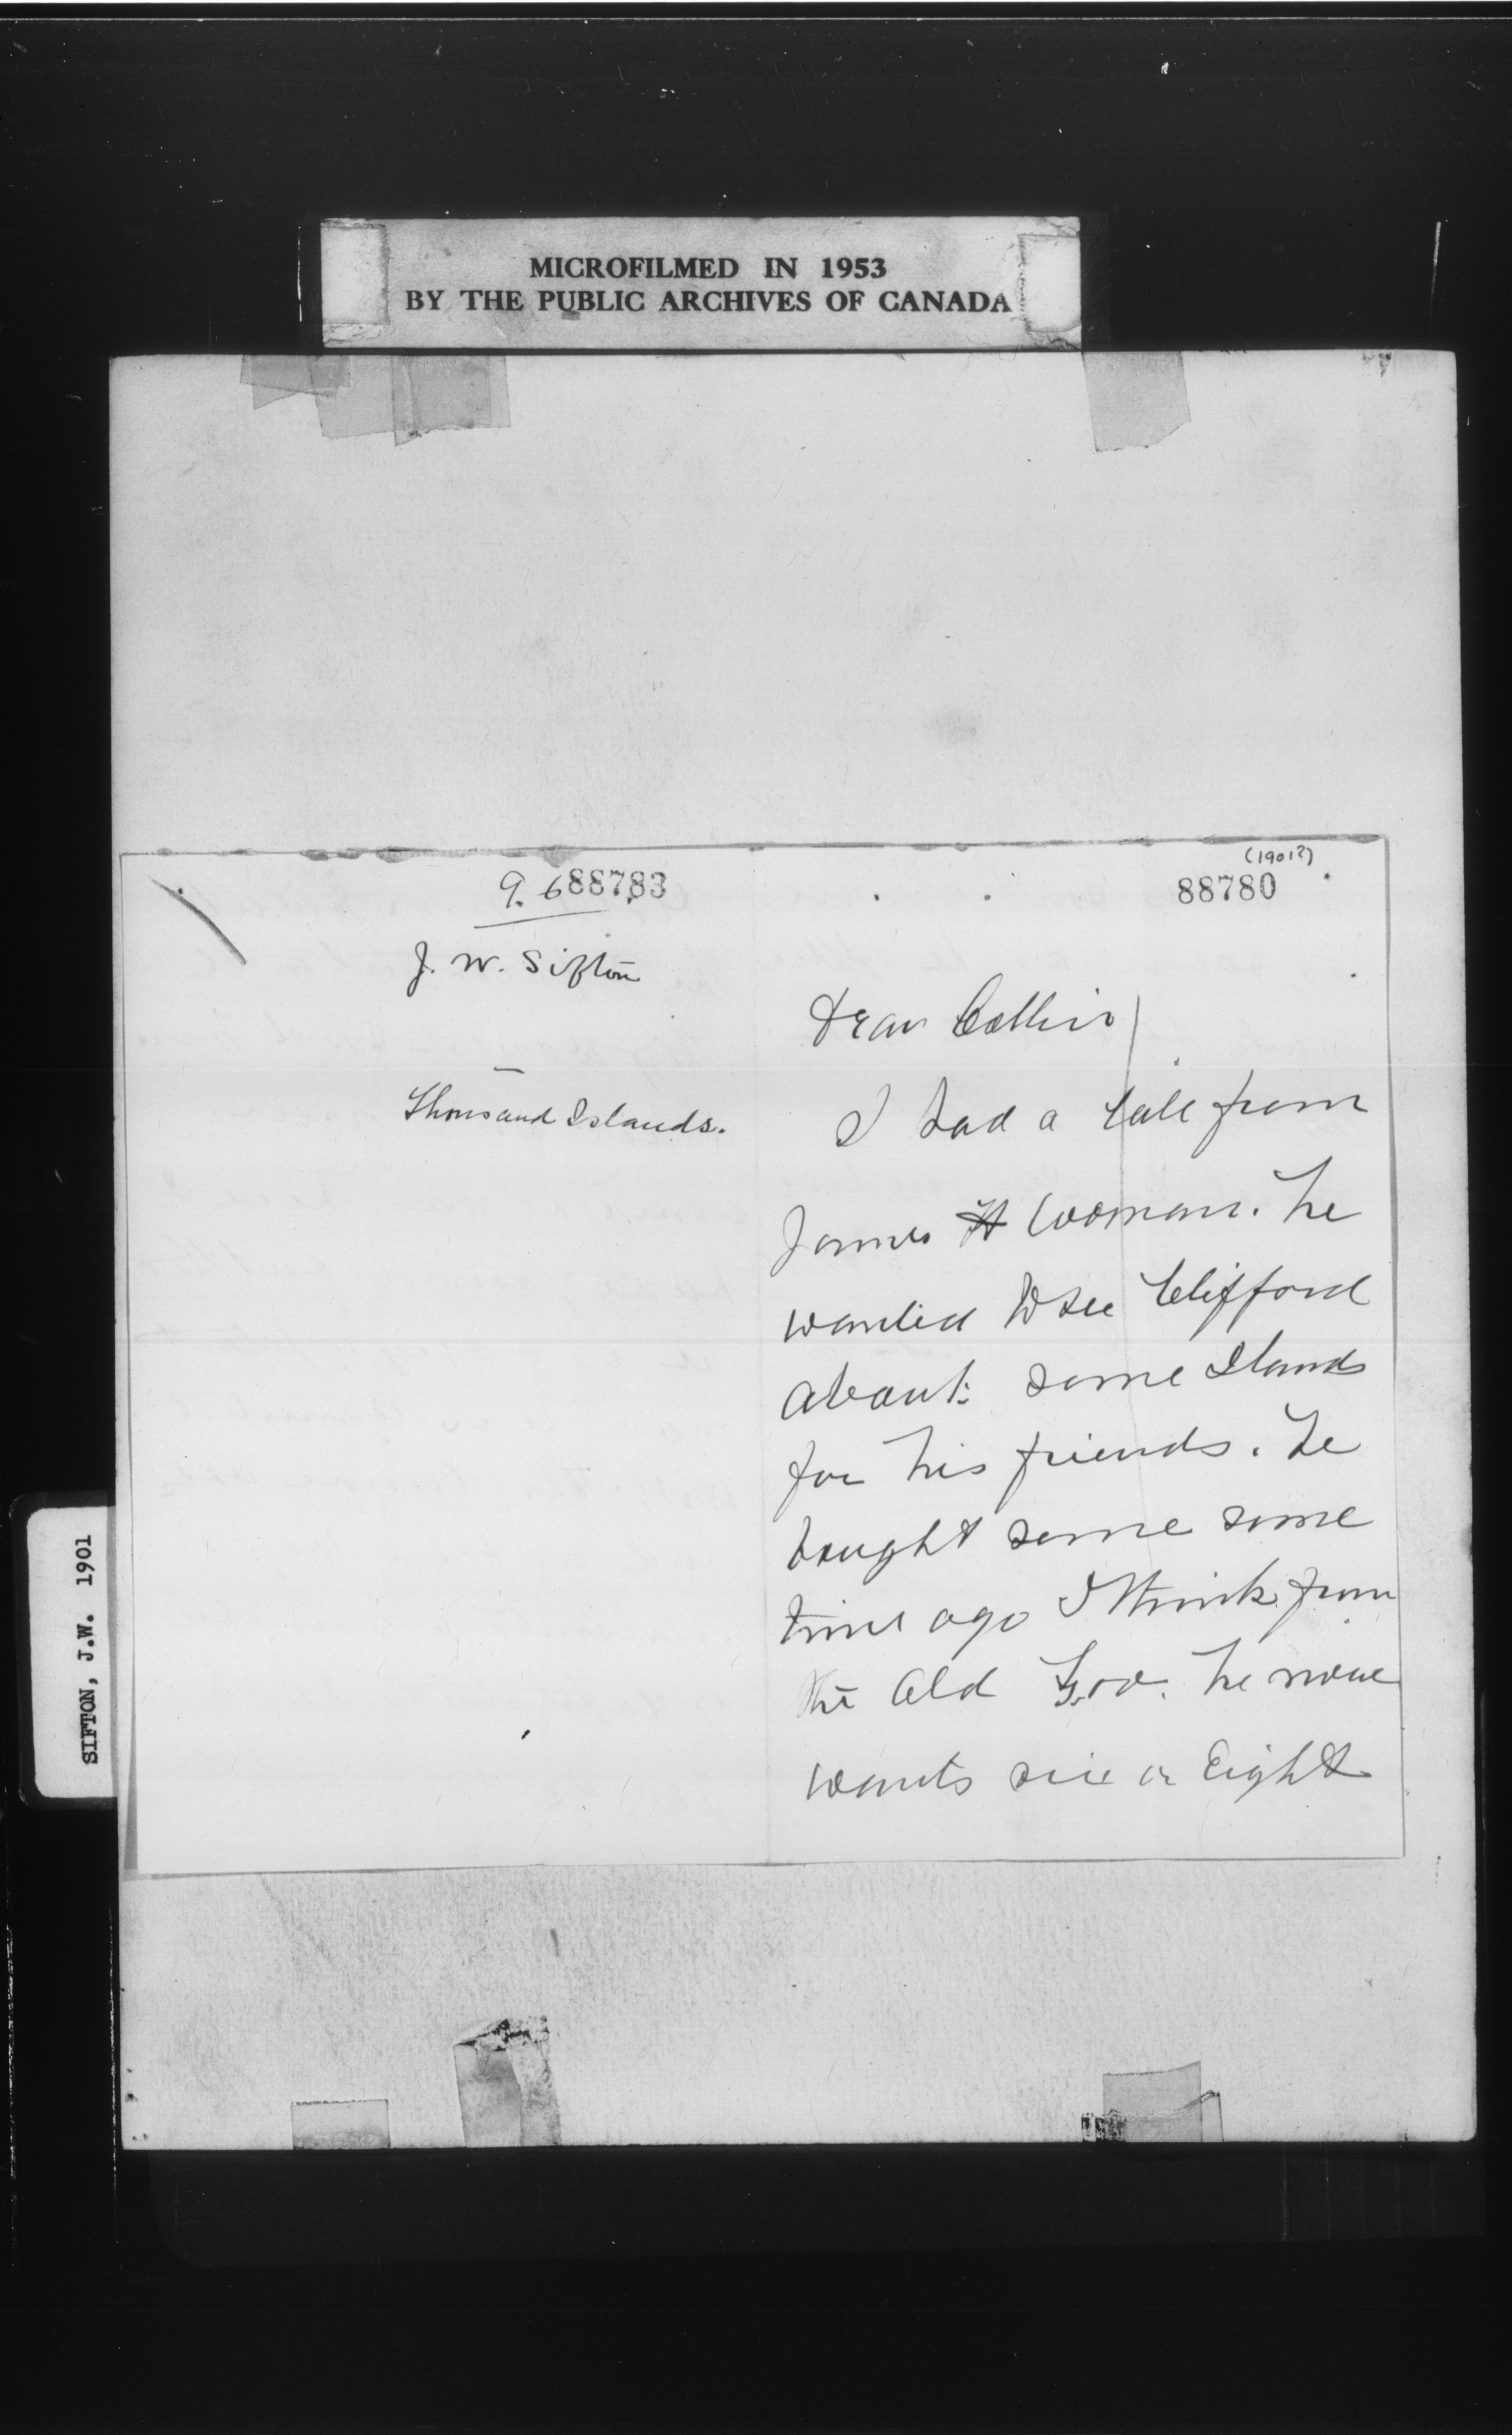 MICROFILMED IN 1953
BY THE PUBLIC ARCHIVES OF CANADA
9. 6 88783
J. W. Sifton
Thousand Islands.
(1901?)
88780
Dear Collier
I had a call from
James H Woman. he
wanted to see Clifford
about some Ilands
for his friends. he
bought some some
time ago I think from
the Old Gov. he now
wants six or Eight
SIFTON, J.W. 1901